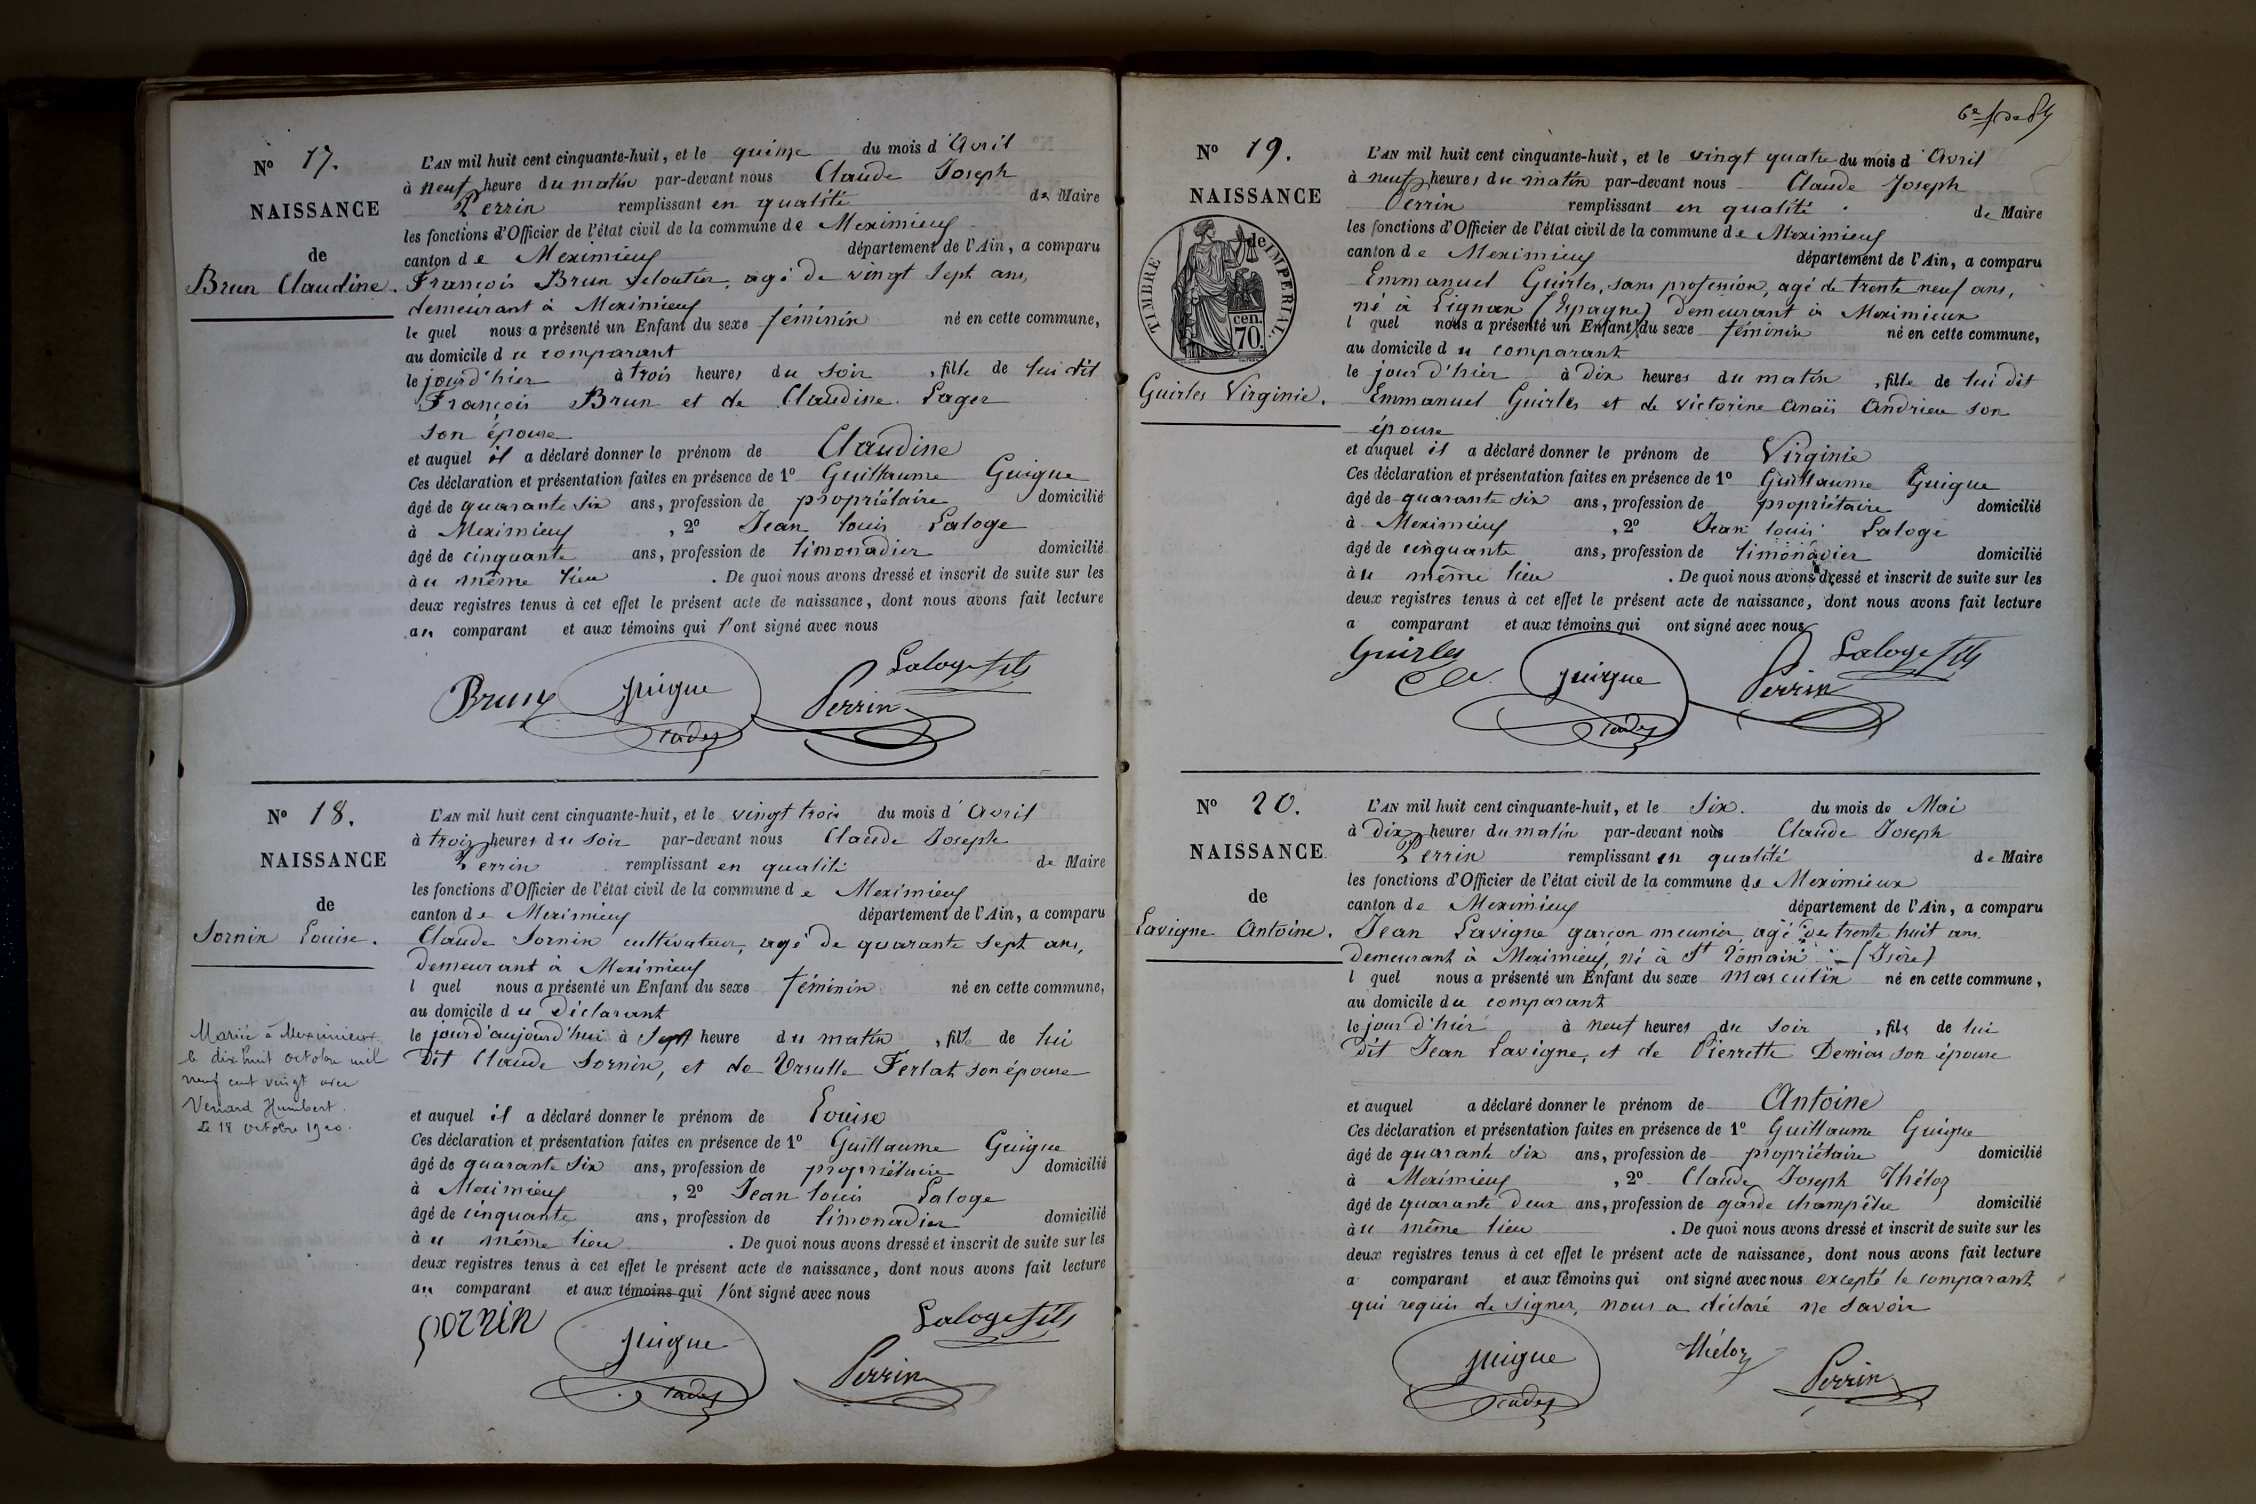 N° 17.
NAISSANCE
de
Brun Claudine.
L'AN mil huit cent cinquante-huit, et le quinze du mois d'Avril
à neuf heure du matin par-devant nous Claude Joseph
Perrin remplissant en qualité de Maire
les fonctions d'Officier de l'état civil de la commune de Meximieux
canton de Meximieux département de l'Ain, a comparu
François Brun veloutier, agé de vingt sept ans,
demeurant à Meximieux
le quel nous a présenté un Enfant du sexe féminin né en cette commune,
au domicile du comparant
le jour d'hier à trois heures du soir, fille de lui dit
François Brun et de Claudine Lager
son épouse
et auquel il a déclaré donner le prénom de Claudine
Ces déclaration et présentation faites en présence de 1° Guillaume Guigue
âgé de quarante six ans, profession de propriétaire domicilié
à Meximieux, 2° Jean louis Laloge
âgé de cinquante ans, profession de limonadier domicilié
à u même lieu. De quoi nous avons dressé et inscrit de suite sur les
deux registres tenus à cet effet le présent acte de naissance, dont nous avons fait lecture
au comparant et aux témoins qui l'ont signé avec nous
Brun Guigue Perrin Laloge fils
cadet
N° 18.
NAISSANCE
de
Sornin Louise.
Mariée à Meximieux
le dix huit octobre mil
neuf cent vingt avec
Venard Humbert.
Le 18 octobre 1920.
L'AN mil huit cent cinquante-huit, et le vingt trois du mois d'Avril
à trois heures du soir par-devant nous Claude Joseph
Perrin remplissant en qualité de Maire
les fonctions d'Officier de l'état civil de la commune de Meximieux
canton de Meximieux département de l'Ain, a comparu
Claude Sornin cultivateur, agé de quarante sept ans,
demeurant à Meximieux
l quel nous a présenté un Enfant du sexe féminin né en cette commune,
au domicile du déclarant
le jourd'aujourd'hui à Sept heure du matin, fille de lui
dit Claude Sornin, et de Ursulle Ferlat son épouse
et auquel il a déclaré donner le prénom de Louise
Ces déclaration et présentation faites en présence de 1° Guillaume Guigue
âgé de quarante six ans, profession de propriétaire domicilié
à Meximieux, 2° Jean louis Laloge
âgé de cinquante ans, profession de limonadier domicilié
à u même lieu. De quoi nous avons dressé et inscrit de suite sur les
deux registres tenus à cet effet le présent acte de naissance, dont nous avons fait lecture
au comparant et aux témoins qui l'ont signé avec nous
Sornin Guigue Perrin Laloge fils
cadet
N° 19.
NAISSANCE
de
TIMBRE IMPERIAL.
70. cen.
Guirles Virginie.
L'AN mil huit cent cinquante-huit, et le vingt quatre du mois d'Avril
à neuf heures du matin par-devant nous Claude Joseph
Perrin remplissant en qualité de Maire
les fonctions d'Officier de l'état civil de la commune de Meximieux
canton de Meximieux département de l'Ain, a comparu
Emmanuel Guirles, sans profession, agé de trente neuf ans,
né à Lignan (Espagne) demeurant à Meximieux
l quel nous a présenté un Enfant du sexe féminin né en cette commune,
au domicile du comparant
le jour d'hier à dix heures du matin, fille de lui dit
Emmanuel Guirles et de victorine Anaïs Andrieu son
épouse
et auquel il a déclaré donner le prénom de Virginie
Ces déclaration et présentation faites en présence de 1° Guillaume Guigue
âgé de quarante six ans, profession de propriétaire domicilié
à Meximieux, 2° Jean louis Laloge
âgé de cinquante ans, profession de limonadier domicilié
à u même lieu. De quoi nous avons dressé et inscrit de suite sur les
deux registres tenus à cet effet le présent acte de naissance, dont nous avons fait lecture
a comparant et aux témoins qui ont signé avec nous
Guirles Guigue Perrin Laloge fils
cadet
N° 20.
NAISSANCE
de
Lavigne Antoine.
L'AN mil huit cent cinquante-huit, et le Six. du mois de Mai
à dix heures du matin par-devant nous Claude Joseph
Perrin remplissant en qualité de Maire
les fonctions d'Officier de l'état civil de la commune de Meximieux
canton de Meximieux département de l'Ain, a comparu
Jean Lavigne garçon meunier agé de trente huit ans
demeurant à Meximieux, né à St Romain (Isère)
l quel nous a présenté un Enfant du sexe masculin né en cette commune,
au domicile du comparant
le jour d'hier à neuf heures du soir, fils de lui
dit Jean Lavigne, et de Pierrette Derrias son épouse
et auquel a déclaré donner le prénom de Antoine
Ces déclaration et présentation faites en présence de 1° Guillaume Guigue
âgé de quarante six ans, profession de propriétaire domicilié
à Meximieux, 2° Claude Joseph Théloz
âgé de quarante deux ans, profession de garde champêtre domicilié
à u même lieu. De quoi nous avons dressé et inscrit de suite sur les
deux registres tenus à cet effet le présent acte de naissance, dont nous avons fait lecture
a comparant et aux témoins qui ont signé avec nous excepté le comparant
qui requis de signer, nous a déclaré ne savoir
Guigue Théloz Perrin
cadet